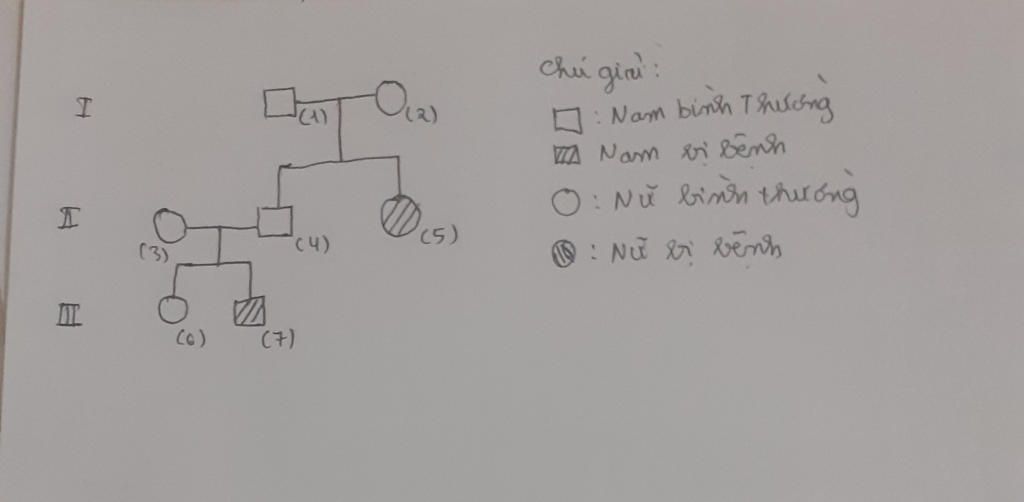 I
(1)
(2)
II
(3)
(4)
(5)
III
(6)
(7)
Chú giải:
: Nam bình Thường
Nam bị bệnh
: Nữ bình thường
: Nữ bị bệnh